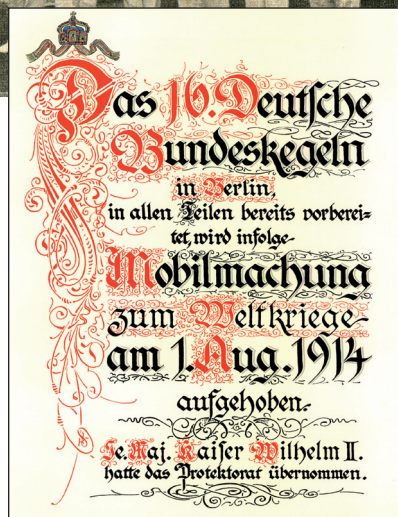 Das 16. Deutſche
Bundeskegeln
in Berlin,
in allen Teilen bereits vorberei-
tet, wird infolge
Mobilmachung
zum Weltkriege
am 1. Aug. 1914
aufgehoben.
Se. Maj. Kaiſer Wilhelm II.
hatte das Protektorat übernommen.